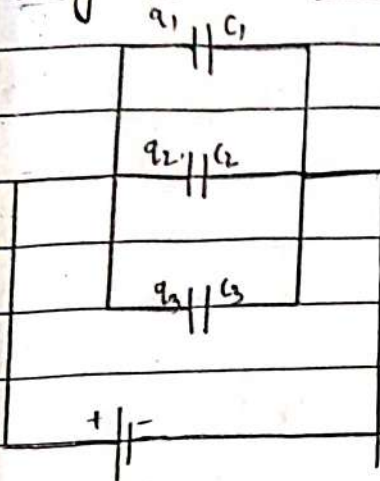 q1 C1
q2 C2
q3 C3
+ -